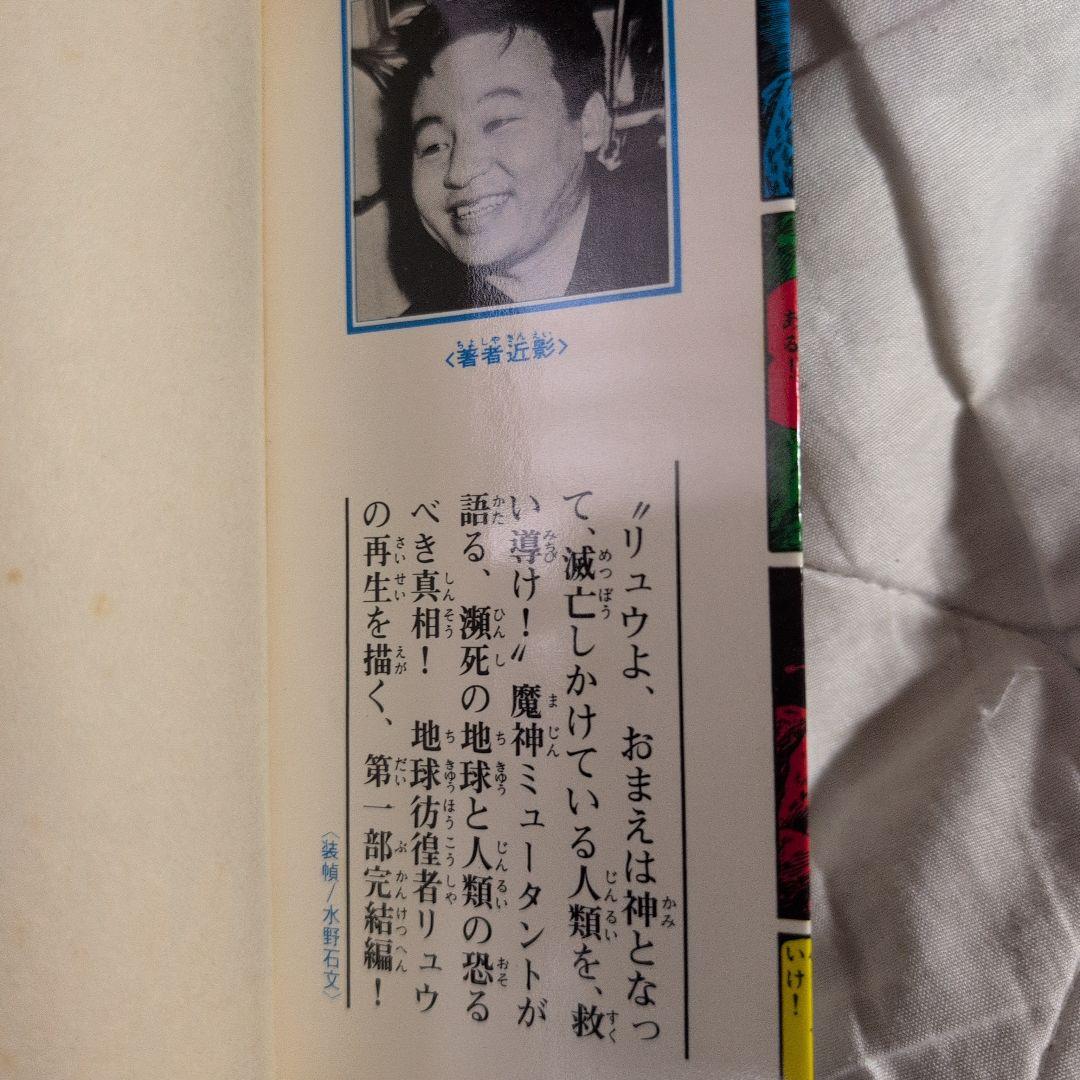 〈著者近影〉
〝リュウよ、おまえは神となっ
て、滅亡しかけている人類を、救
い導け！〟魔神ミュータントが
語る、瀕死の地球と人類の恐る
べき真相！　地球彷徨者リュウ
の再生を描く、第一部完結編！
〈装幀/水野石文〉
ある！
いけ！